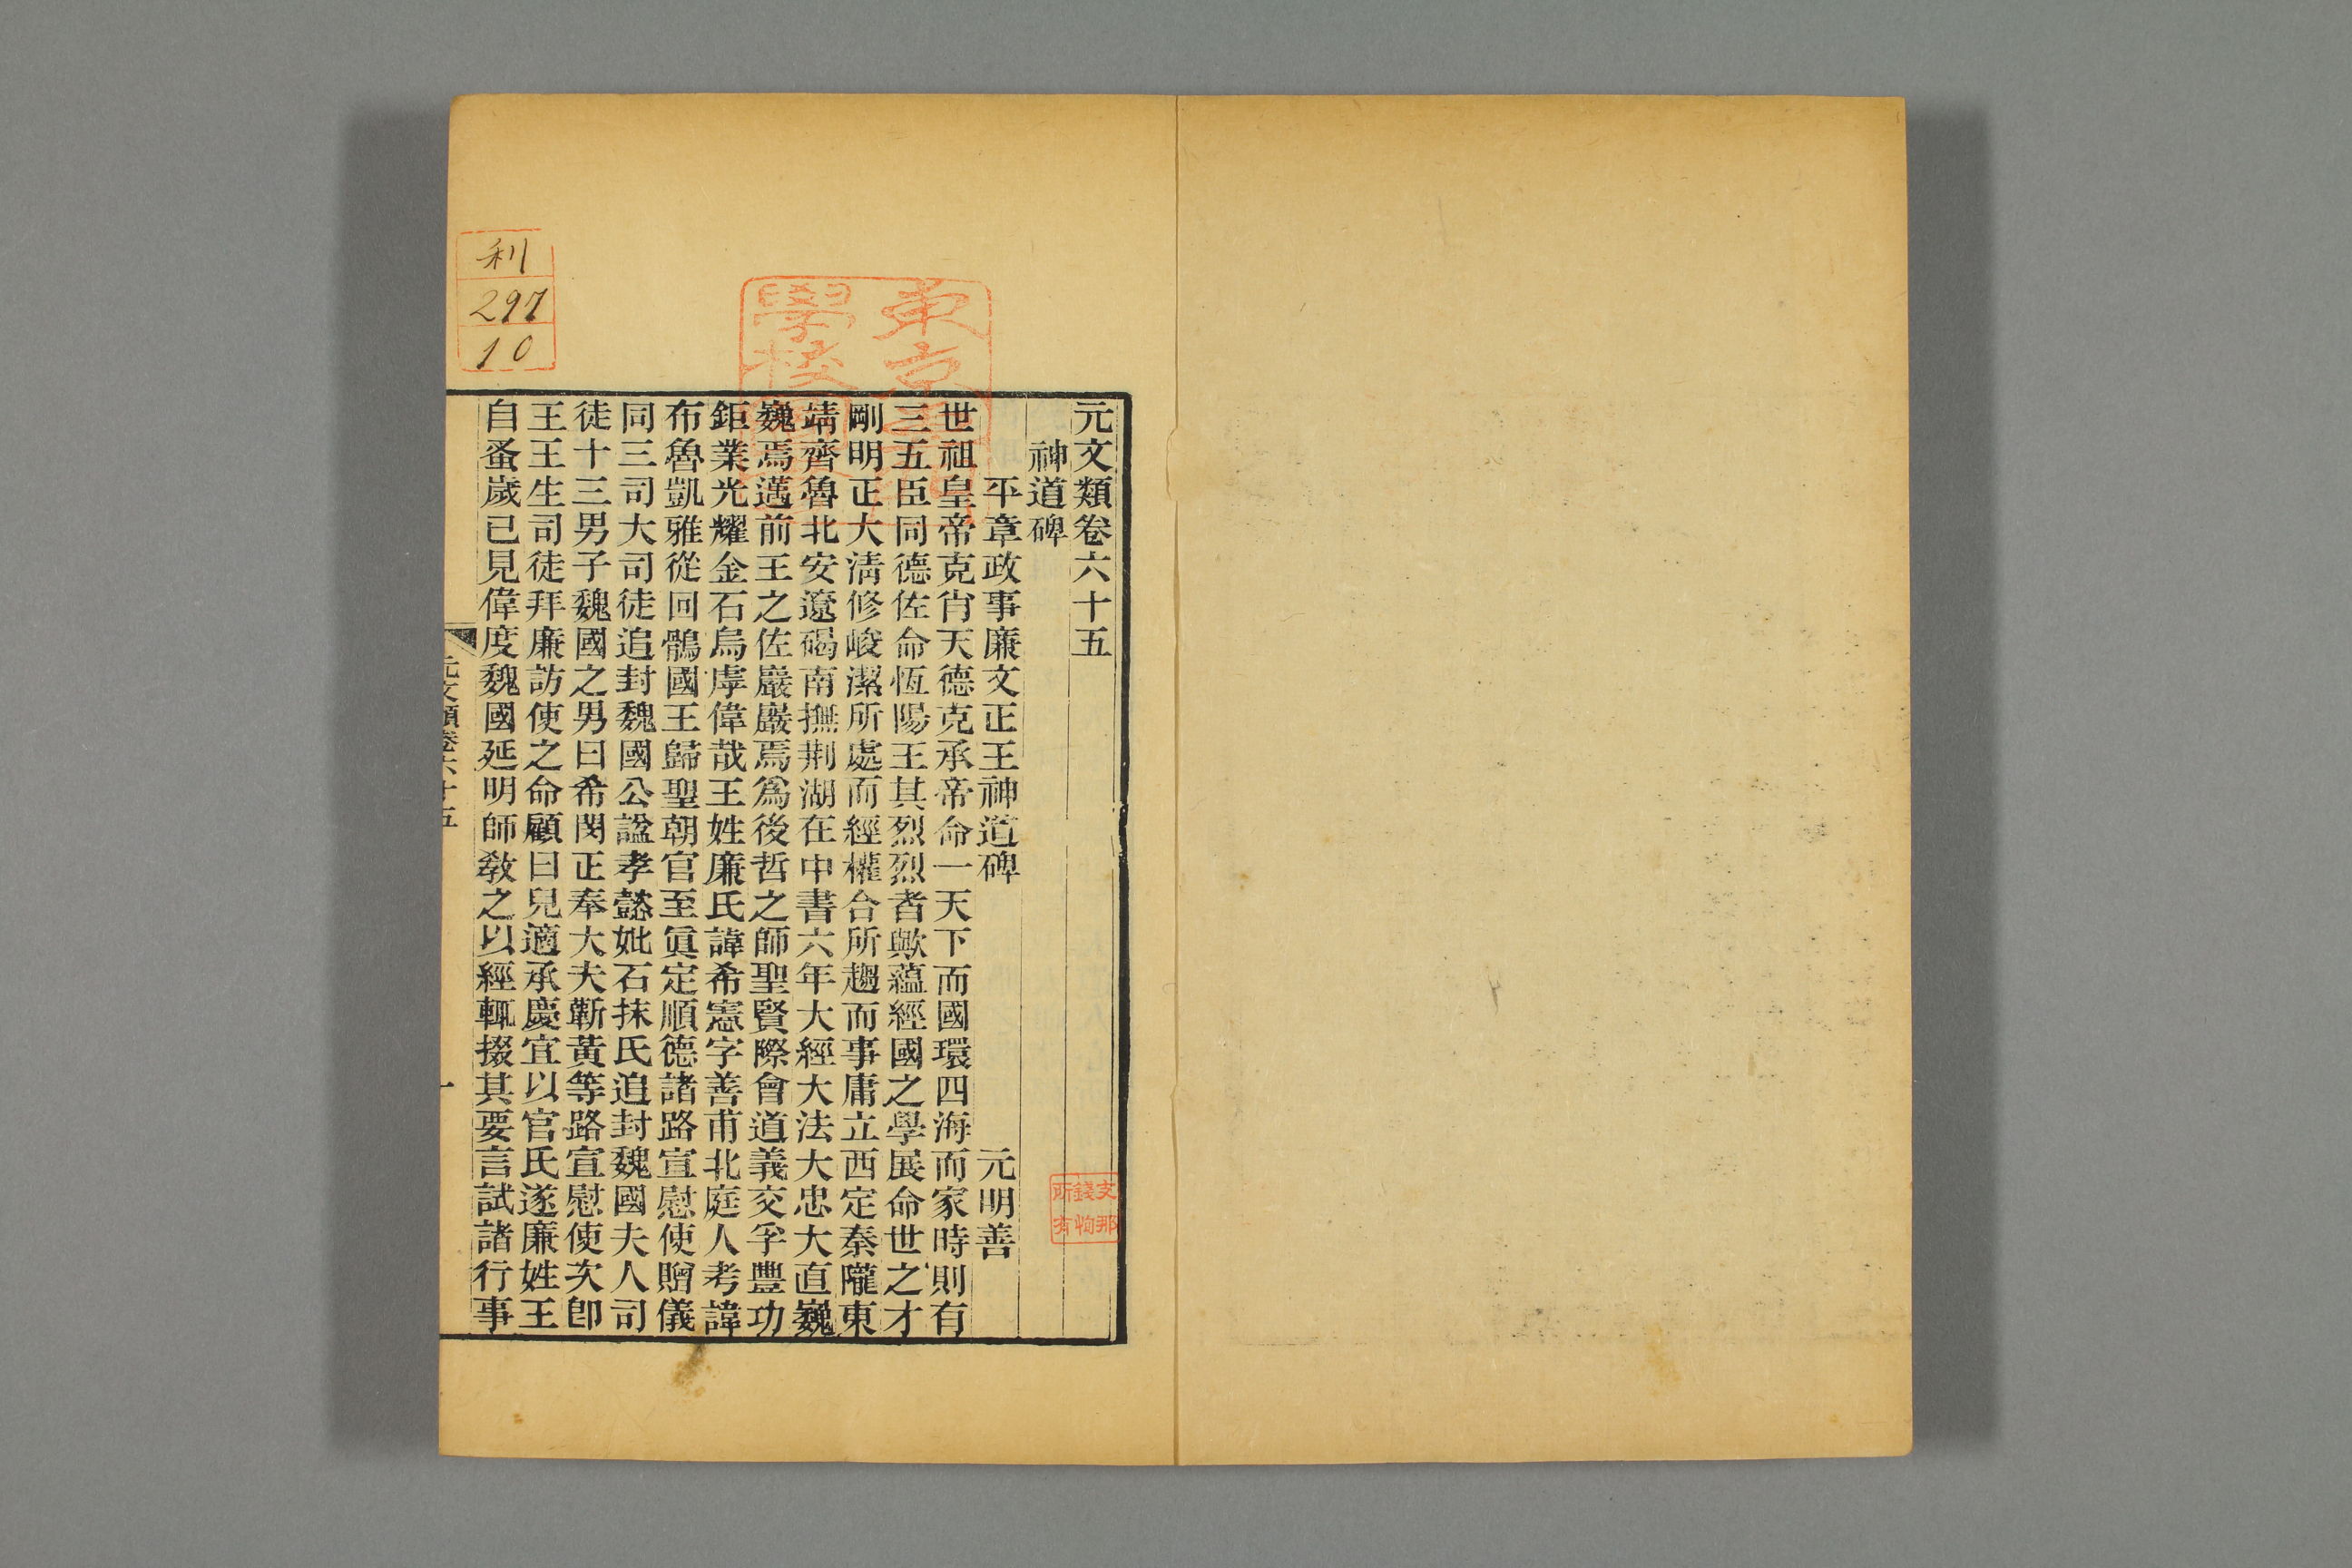 元文類卷六十五
神道碑
平章政事廉文正王神道碑 元明善
世祖皇帝克肖天德克承帝命一天下而國環四海而家時則有
三五臣同德佐命恆陽王其烈烈者歟蘊經國之學展命世之才
剛明正大淸修峻潔所處而經權合所趨而事庸立西定秦隴東
靖齊魯北安遼碣南撫荆湖在中書六年大經大法大忠大直巍
巍焉邁前王之佐巖巖焉爲後哲之師聖賢際會道義交孚豐功
鉅業光耀金石烏虖偉哉王姓廉氏諱希憲字善甫北庭人考諱
布魯凱雅從回鶻國王歸聖朝官至眞定順德諸路宣慰使贈儀
同三司大司徒追封魏國公諡孝懿妣石抹氏追封魏國夫人司
徒十三男子魏國之男曰希閔正奉大夫蘄黃等路宣慰使次卽
王王生司徒拜廉訪使之命顧曰兒適承慶宜以官氏遂廉姓王
自蚤歲已見偉度魏國延明師敎之以經輒掇其要言試諸行事
元文類卷六十五 一
利
297
10
東京
學校
支那
錢恂
所有